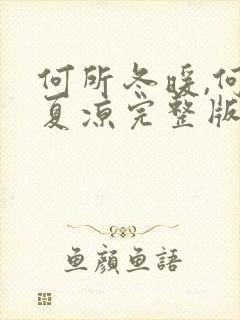 何所冬暖,何
夏凉完整版
鱼颜鱼語